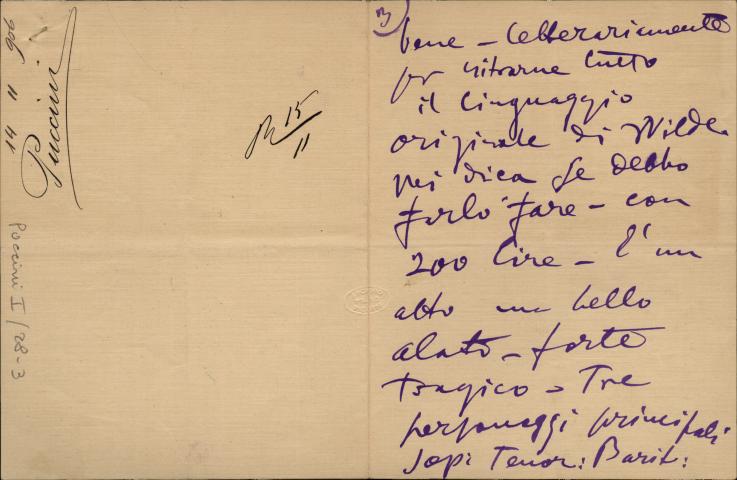 906
14 11
Puccini
Puccini I/28-3
R 15/11
3)
bene - letterariamente
per ritrarne tutto
il linguaggio
originale di Wilde.
Mi dica se debbo
farlo fare - con
200 lire - È un
atto ma bello
alato - forte
tragico - Tre
personaggi principali
Sop: Tenor: Barit: